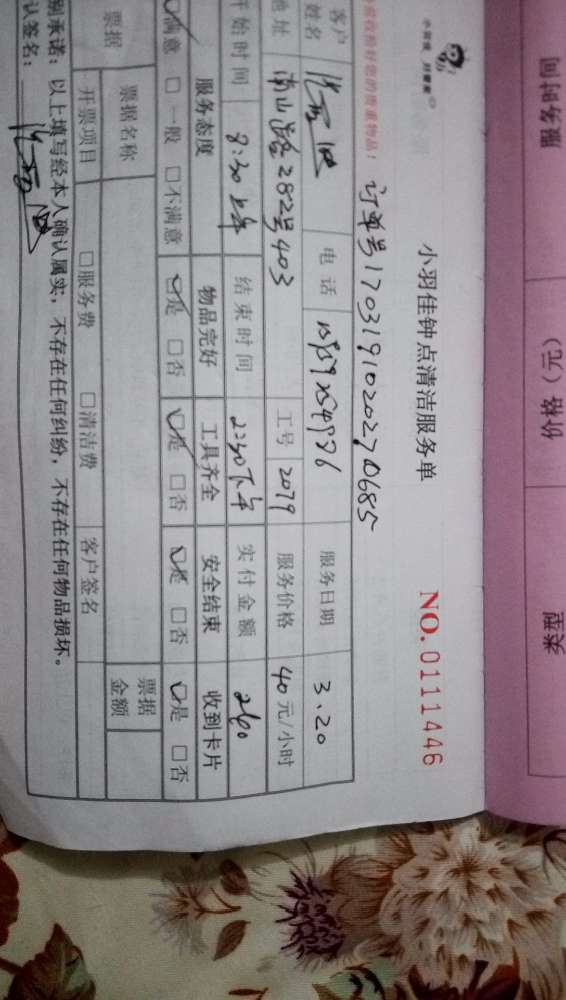 服务时间 价格（元） 类型
小羽佳钟点清洁服务单 NO.0111446
收拾好您的贵重物品！ 订单号17031910202270685
客户姓名 电话 服务日期 3.20
地址 南山路282号403 工号 2079 服务价格 40元/小时
开始时间 8:30上午 结束时间 2:30下午 实付金额 260
服务态度 物品完好 工具齐全 安全结束 收到卡片
☑满意 □一般 □不满意 ☑是 □否 ☑是 □否 ☑是 □否 ☑是 □否
票据 票据名称 票据金额
开票项目 □服务费 □清洁费 客户签名
别承诺：以上填写经本人确认属实，不存在任何纠纷，不存在任何物品损坏。
认签名：